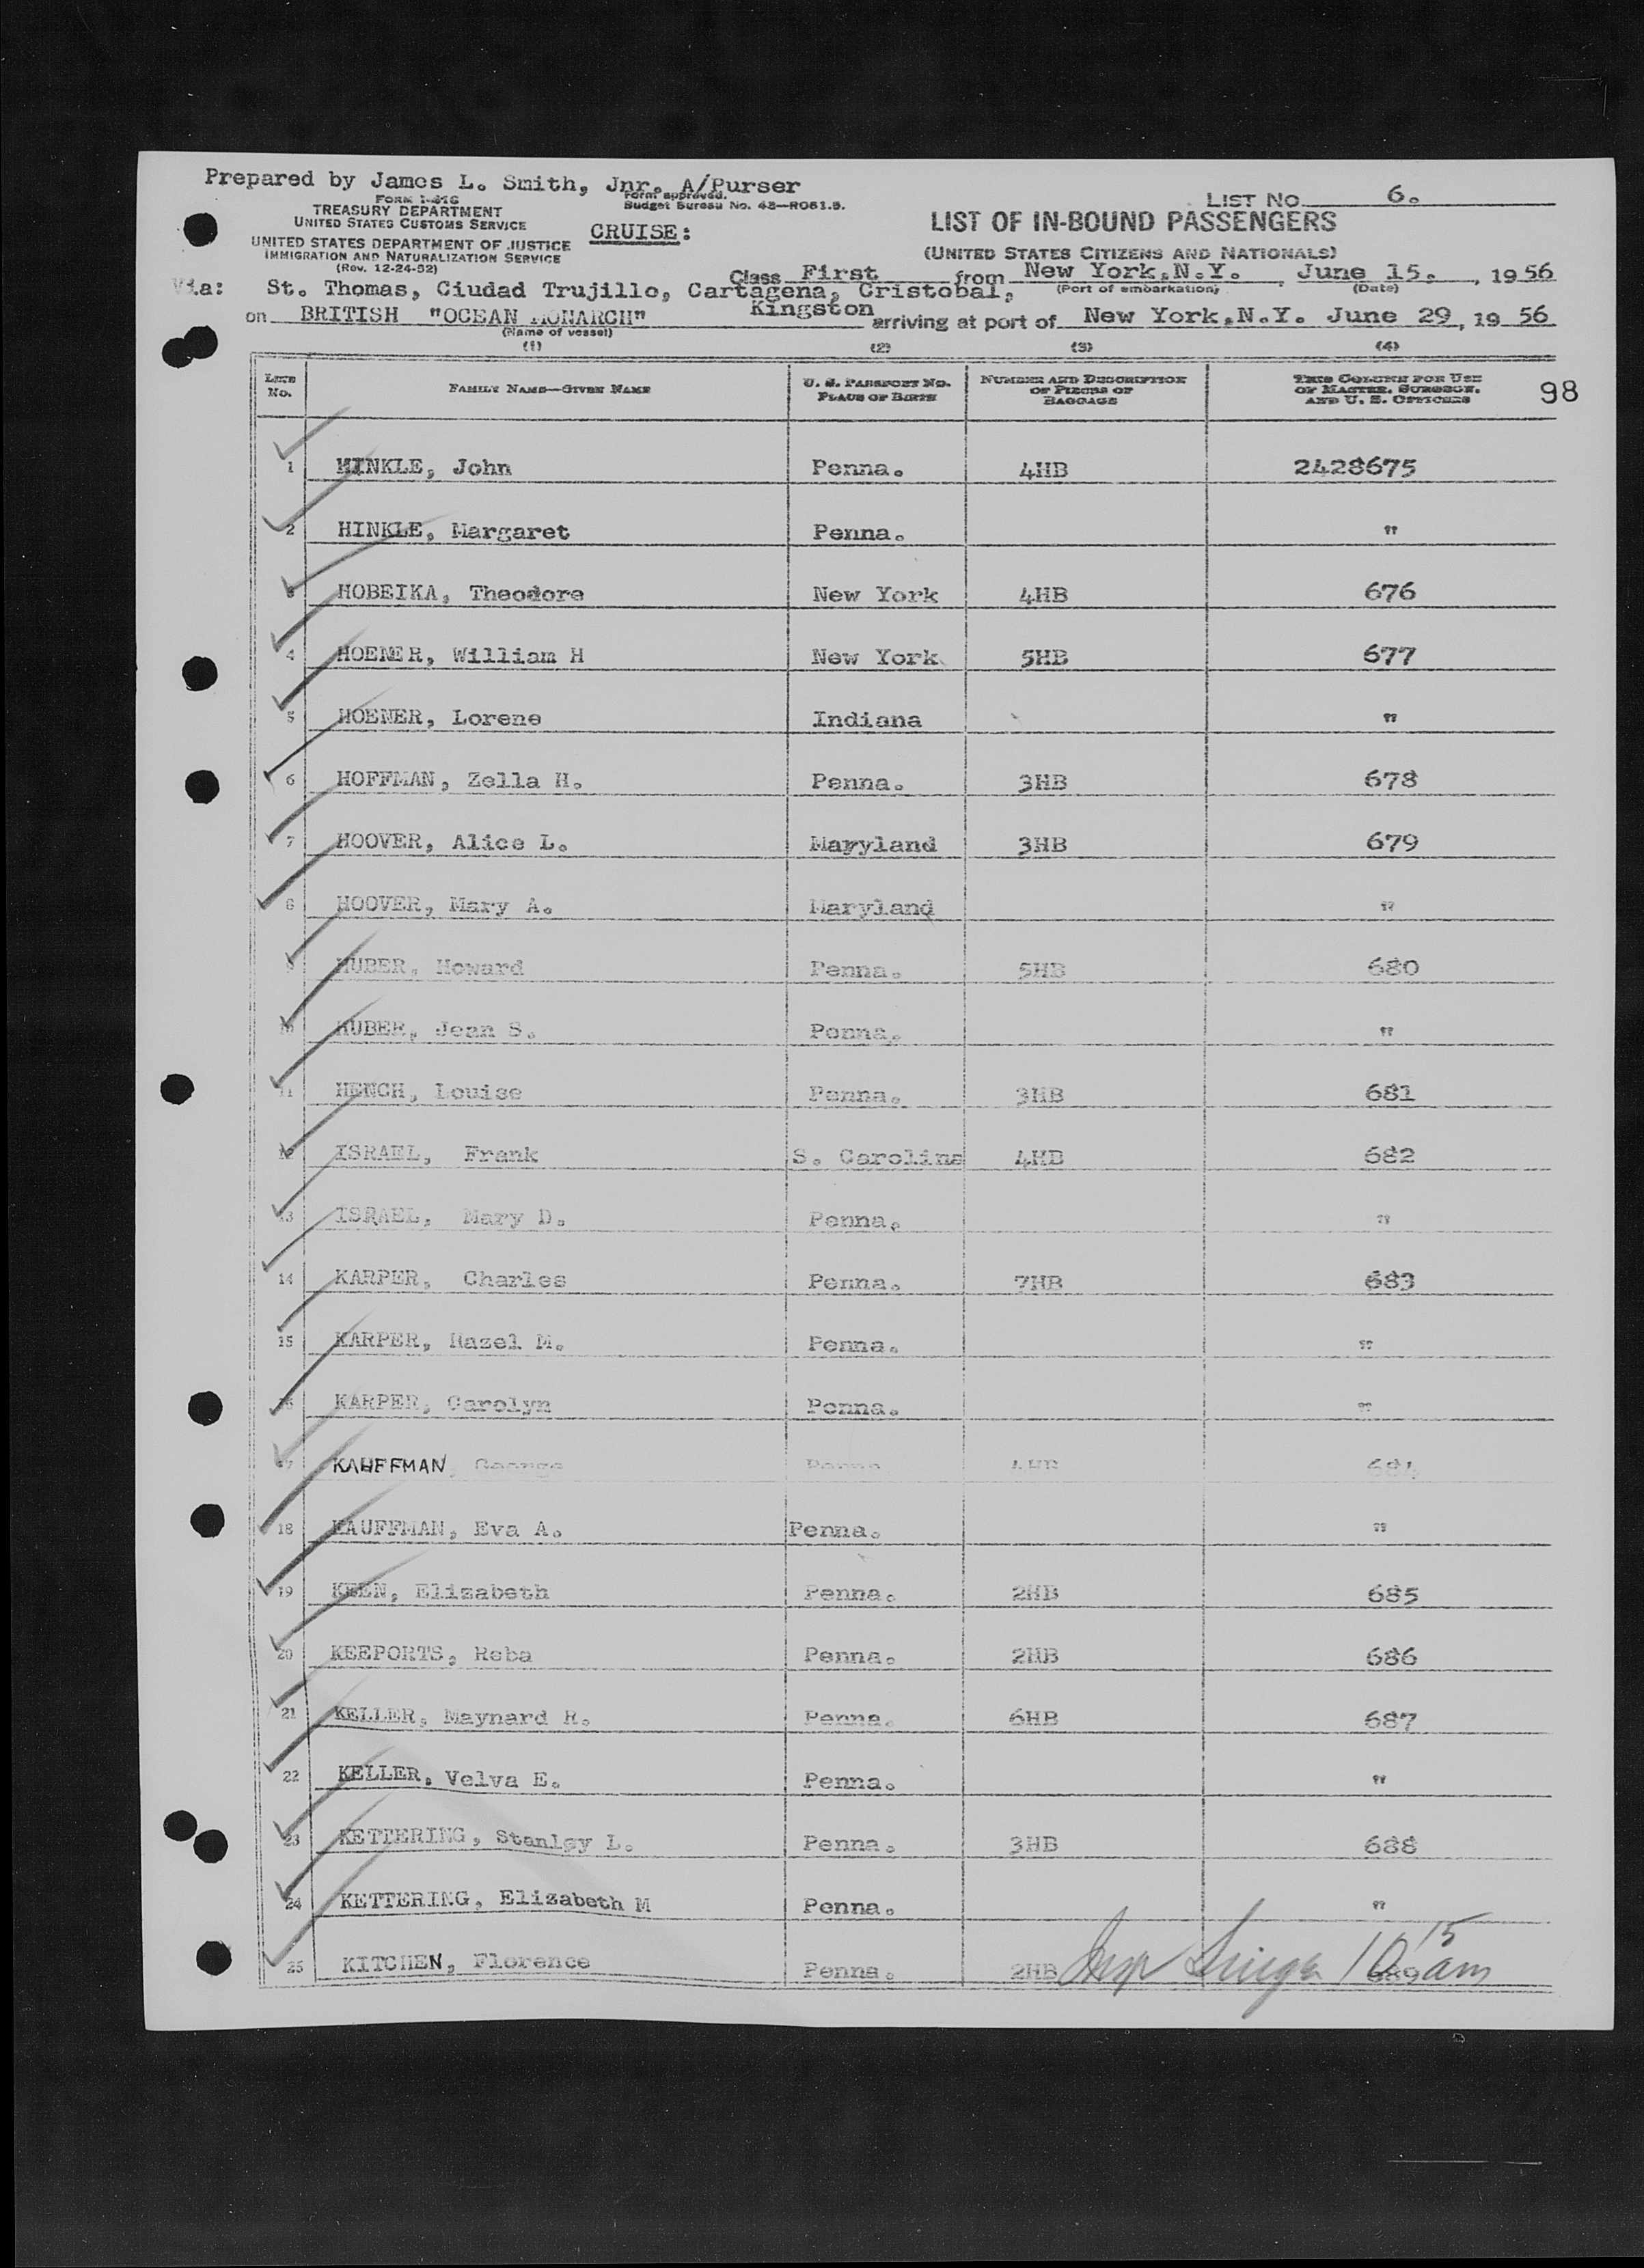 Prepared by James L. Smith, Jnr. A/Purser
FORM I-416
TREASURY DEPARTMENT
UNITED STATES CUSTOMS SERVICE
UNITED STATES DEPARTMENT OF JUSTICE
IMMIGRATION AND NATURALIZATION SERVICE
(Rev. 12-24-52)
Form approved.
Budget Bureau No. 43—R081.5.
CRUISE:
LIST NO. 6.
LIST OF IN-BOUND PASSENGERS
(UNITED STATES CITIZENS AND NATIONALS)
Class First from New York, N.Y. June 15, , 1956
(Port of embarkation) (Date)
Via: St. Thomas, Ciudad Trujillo, Cartagena, Cristobal,
Kingston
on BRITISH "OCEAN MONARCH" arriving at port of New York, N.Y. June 29, 1956
(Name of vessel)
(1) (2) (3) (4)
LINE NO. FAMILY NAME—GIVEN NAME U. S. PASSPORT NO. PLACE OF BIRTH NUMBER AND DESCRIPTION OF PIECES OF BAGGAGE THIS COLUMN FOR USE OF MASTER, SURGEON, AND U. S. OFFICERS 98
1 HINKLE, John Penna. 4HB 2428675
2 HINKLE, Margaret Penna. "
3 HOBEIKA, Theodore New York 4HB 676
4 HOENER, William H New York 5HB 677
5 HOENER, Lorene Indiana "
6 HOFFMAN, Zella H. Penna. 3HB 678
7 HOOVER, Alice L. Maryland 3HB 679
8 HOOVER, Mary A. Maryland "
9 HUBER, Howard Penna. 5HB 680
10 HUBER, Jean S. Penna. "
11 HENCH, Louise Penna. 3HB 681
12 ISRAEL, Frank S. Carolina 4HB 682
13 ISRAEL, Mary D. Penna. "
14 KARPER, Charles Penna. 7HB 683
15 KARPER, Hazel M. Penna. "
16 KARPER, Carolyn Penna. "
17 KAUFFMAN, George Penna. 4HB 684
18 KAUFFMAN, Eva A. Penna. "
19 KEEN, Elizabeth Penna. 2HB 685
20 KEEPORTS, Reba Penna. 2HB 686
21 KELLER, Maynard R. Penna. 6HB 687
22 KELLER, Velva E. Penna. "
23 KETTERING, Stanley L. Penna. 3HB 688
24 KETTERING, Elizabeth M Penna. "
25 KITCHEN, Florence Penna. 2HB 689
Insp 10 15 am